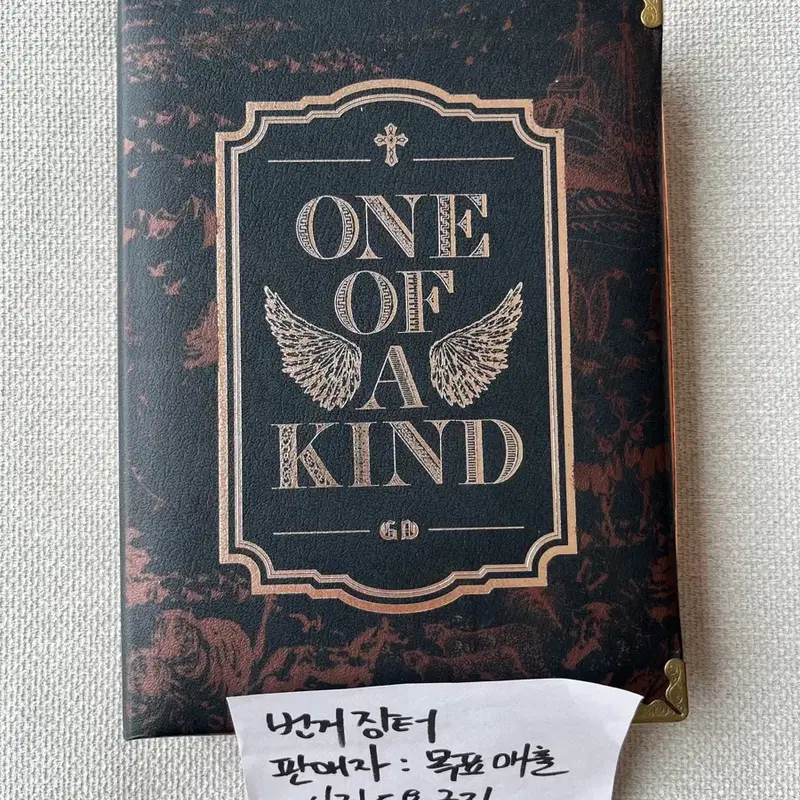 ONE
OF
A
KIND
GD
번개장터
판매자 : 목표매출